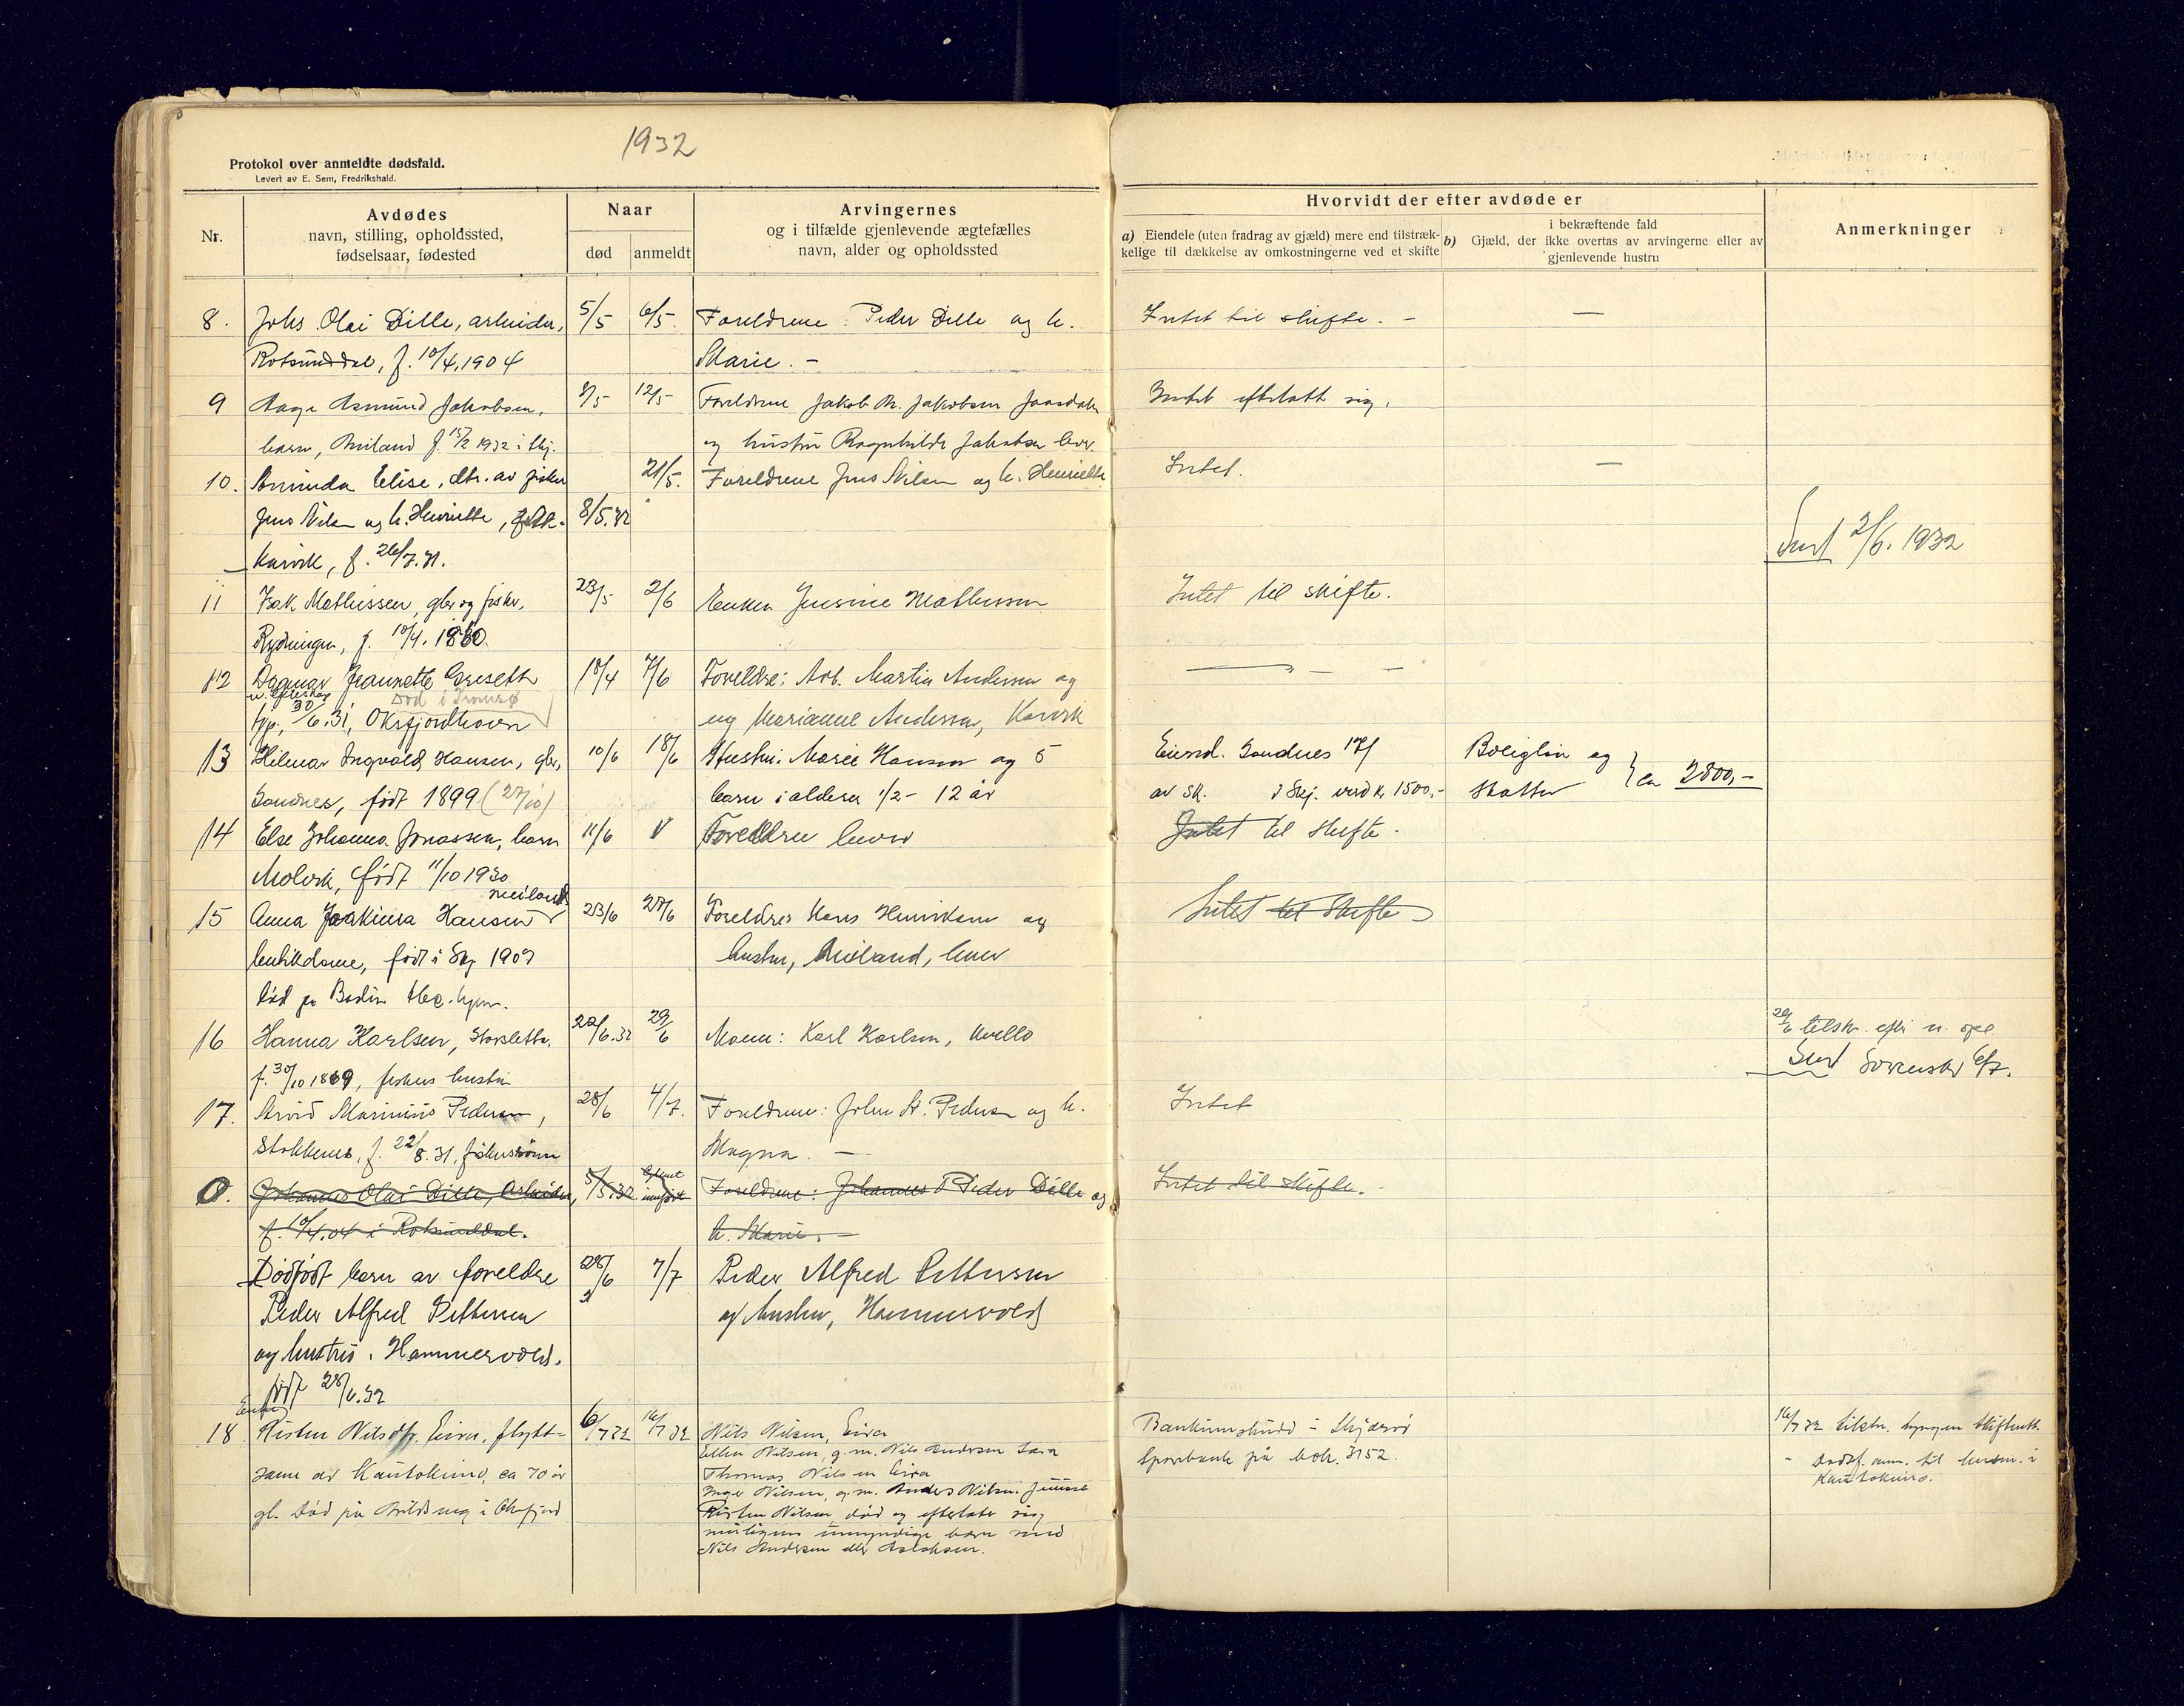 1932
Protokol over anmeldte dødsfald.
Levert av E. Sem, Fredrikshald.
Nr.
Avdødes
navn, stilling, opholdssted,
fødselsaar, fødested
Naar
død
anmeldt
Arvingernes
og i tilfælde gjenlevende ægtefælles
navn, alder og opholdssted
Hvorvidt der efter avdøde er
a) Eiendele (uten fradrag av gjæld) mere end tilstræk-
kelige til dækkelse av omkostningerne ved et skifte
b) i bekræftende fald
Gjæld, der ikke overtas av arvingerne eller av
gjenlevende hustru
Anmerkninger
8. Johs. Olai Dille, arbeider, 5/5 6/5. Foreldrene: Peder Dille og h. Intet til skifte. - —
Rotsunddal, f. 10/4, 1904 Marie. -
9 Aage Asmund Jakobsen, 8/5 12/5 Foreldrene Jakob M. Jakobsen Intet efterlatt sig.
barn, f. 15/2 1932 i Skj. og hustru Ragnhilde Jakobsen lever.
10. Elise, dtr. av fisker 21/5. Foreldrene Jens Nilsen og h. Henriette Intet. —
Jens Nilsen og h. Henriette, 8/5.32
f. 26/7.31. 2/6. 1932
11 Isak Mathissen, gbr og fisker, 23/5 2/6 Enken Jensine Mathissen Intet til skifte.
f. 10/4. 1860.
12 Dagmar Jeanette 18/4 7/6 Foreldre: Arb. Martin Andersen og — - —
Død i Tromsø
30/6.31, Oksfjordhavn og Marianne Andersen,
13 Hilmar Ingvald Hansen, gbr, 10/6 18/6 Hustru: Marie Hansen og 5 Eiend. Sandnes 17/ og
Sandnes, født 1899 (27/10) barn i alderen 1/2 - 12 år av sk. i Skj. verd kr 1500,- skatter } ca 2800,-
14 Else Johanna Jonassen, barn 11/6 Foreldrene lever Intet til skifte.
født 11/10 1930
15 Anna Joakima Hansen 23/6 27/6 Foreldre: Hans Henriksen og Intet til skifte
butikdame, født i Skj 1909 hustru, lever
død på Bodin
16 Hanna Karlsen, Storslett, 22/6.32 29/6 Mann: Karl Karlsen,
f. 30/10 1869, fiskers hustru
17. Arvid Marinius Pedersen, 28/6 4/7. Foreldrene: John A. Pedersen og h. Intet
Stokkenes, f. 22/8.31, Magna. —
0. Johannes Olai Dille, Arbeider, 5/5.32 innført Foreldrene: Johannes P Peder Dille og Intet til skifte.
f. 10/4.04 i Rotsunddal. h. Marie. —
Dødfødt barn av foreldre 28/6 7/7 Peder Alfred Pettersen
Peder Alfred Pettersen og hustru, Hammervold
og hustru, Hammervold,
født 28/6.32
Enke
18 Kirsten Nilsdtr. Eira, flytt= 6/7 32 16/7 32 Nils Nilsen, Eira Bankinnskudd i Skjærvø 16/7 32
same av Kautokeino, ca 70 år Ellen Nilsen, g.m. Nils Andersen Sara Sparebank på bok 3152.
gl. Død på i Oksfjord Thomas Nilsen Eira til i
Inger Nilsen, g.m. Anders Nilsen Kautokeino.
Kirsten Nilsen, død og efterlater sig
muligens umyndige barn med
Nils Andersen eller Aslaksen.